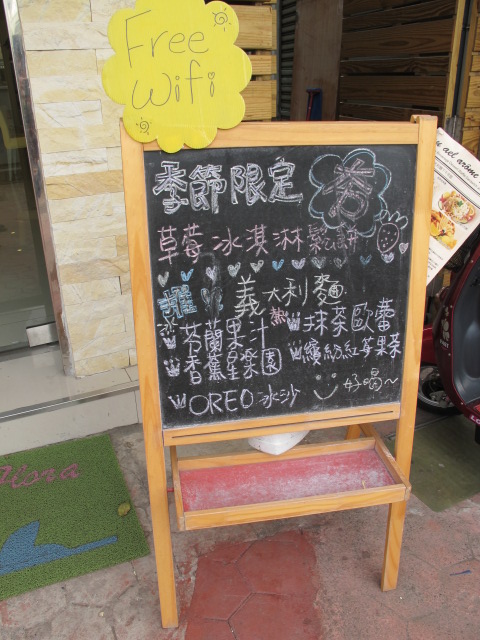 Free
Wifi
季節限定
夯
草莓冰淇淋鬆餅
推
義大利麵
芬蘭果汁
熱
抹茶歐蕾
香蕉星樂園
繽紛紅莓果茶
OREO冰沙
好喝~
ael arôme
flora